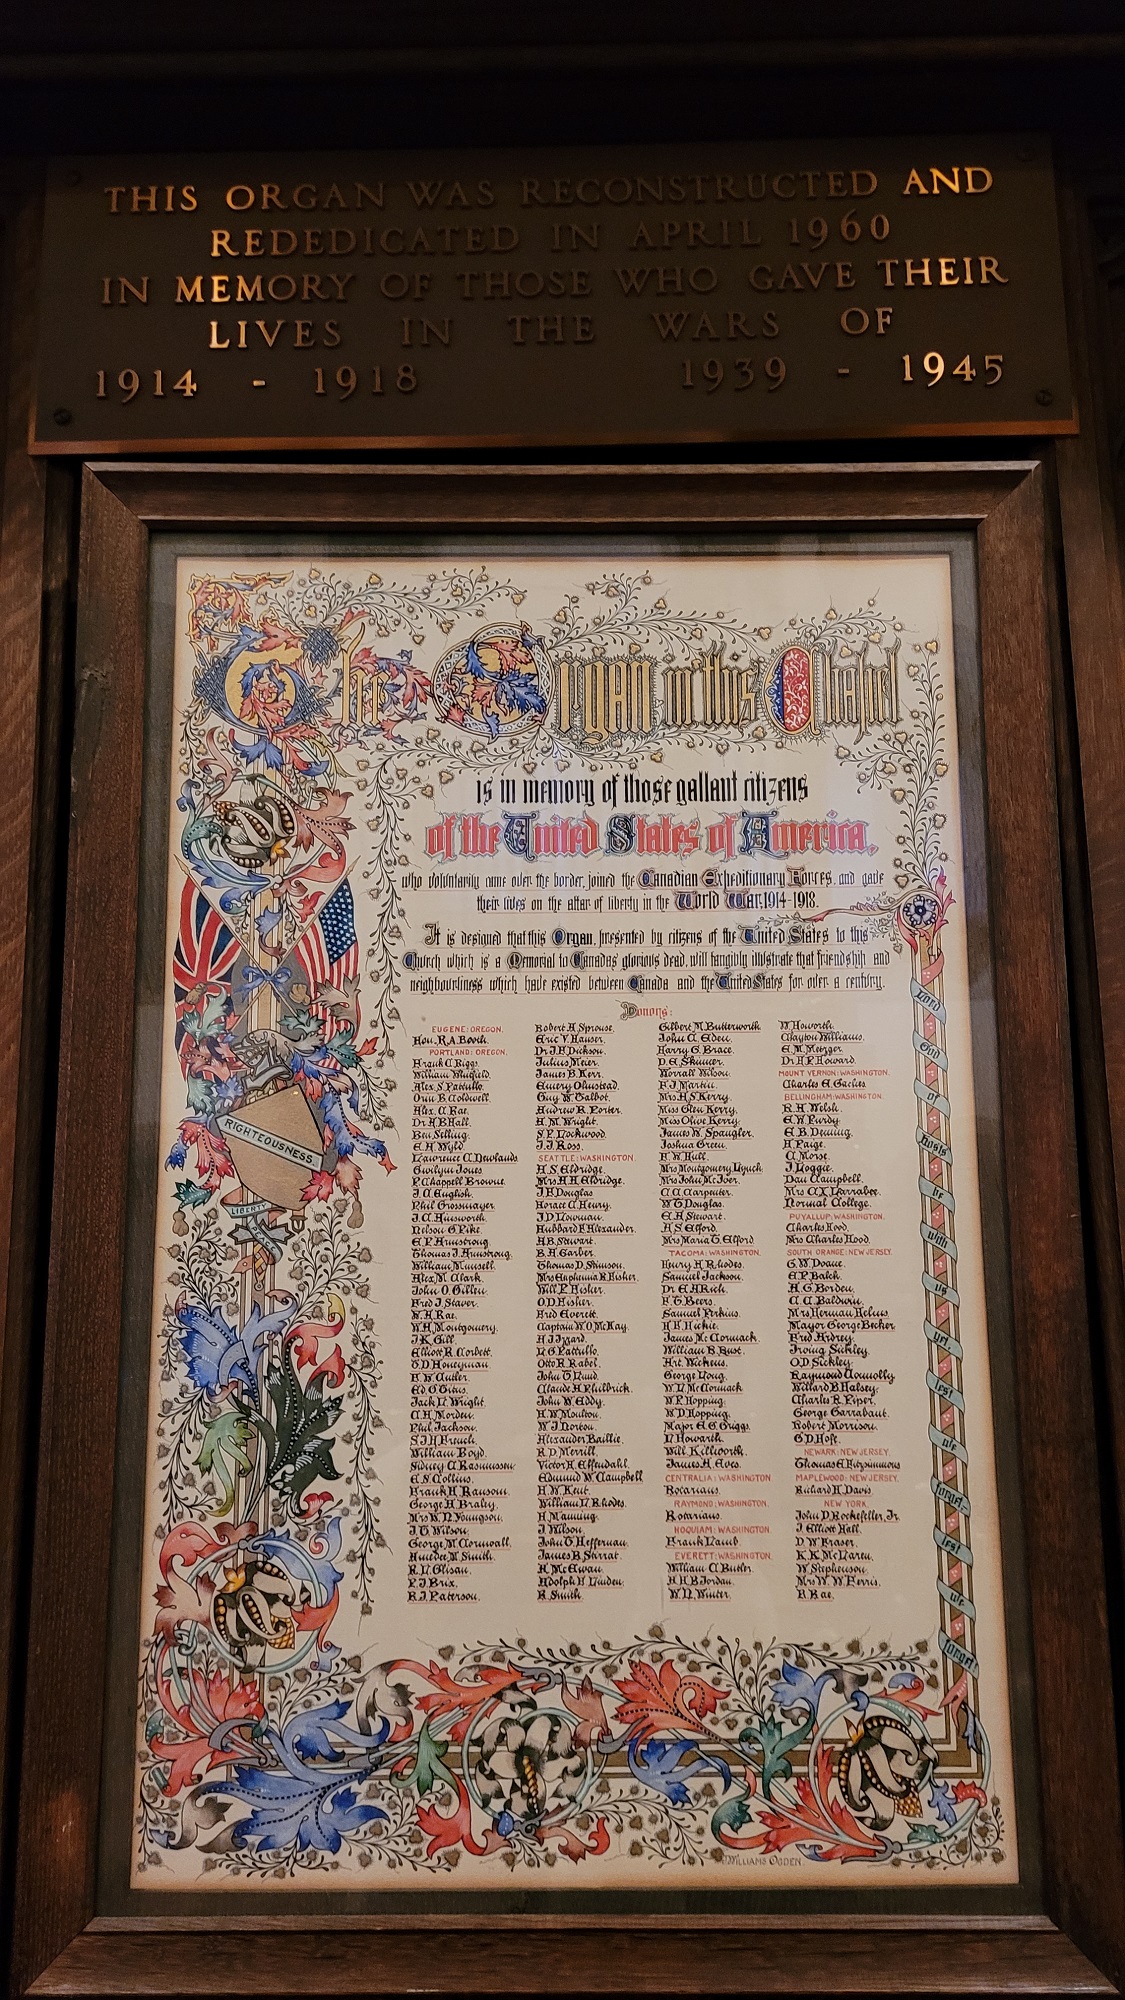 THIS ORGAN WAS RECONSTRUCTED AND
REDEDICATED IN APRIL 1960
IN MEMORY OF THOSE WHO GAVE THEIR
LIVES IN THE WARS OF
1914 - 1918 1939 - 1945
The Organ in this Chapel
is in memory of those gallant citizens
of the United States of America,
who voluntarily came over the border, joined the Canadian Expeditionary Forces, and gave
their lives on the altar of liberty in the World War, 1914-1918.
It is designed that this Organ, presented by citizens of the United States to this
Church which is a Memorial to Canadas glorious dead, will tangibly illustrate that friendship and
neighbourliness which have existed between Canada and the United States for over a century.
Donors:
EUGENE: OREGON.
Hon. R.A. Booth.
PORTLAND: OREGON.
Frank C. Riggs.
William Whitfield
Alex. S. Pattullo.
Orin B. Coldwell.
Alex. C. Rae.
Dr. H.B. Hall.
Ben. Selling.
E.H. Wyld.
Lawrence C. Newlands
Gwilym Jones
P. Chappell Browne.
J.C. English.
Phil Grossmayer
J.C. Ainsworth.
Nelson G. Pike.
E.P. Armstrong
Thomas J. Armstrong.
William Munsell.
Alex. M. Clark.
John O. Gillen.
Fred J. Staver.
W.H. Rae.
W.A. Montgomery.
J.K. Gill.
Elliott R. Corbett.
T.D. Honeyman.
H.W. Cutler.
Ed. C. Titus.
Jack D. Wright.
C.H. Morden.
Phil Jackson.
S.J.H. French.
William Boyd.
Sidney C. Rasmussen
E.S. Collins.
Frank H. Ransom.
George H. Braley.
Mrs. W.D. Youngson.
J.T. Wilson.
George M. Cornwall.
R.L. Glisan.
P.J. Brix.
R.J. Paterson.
Robert H. Sprouse.
Eric V. Hauser.
Dr. J.F. Dickson.
Julius Meier.
James B. Kerr.
Emery Olmstead.
Guy W. Talbot.
Andrew R. Porter.
H.M. Wright.
S.P. Lockwood.
J.J. Ross.
SEATTLE: WASHINGTON.
H.S. Eldridge.
Mrs. A.H. Eldridge.
J.F. Douglas
Horace C. Henry.
J.D. Lowman.
Hubbard F. Alexander.
H.B. Stewart.
B.H. Garber.
Thomas D. Stimson.
Mrs. Euphemia R. Fisher.
Will P. Fisher.
O.D. Fisher.
Fred Everett.
Captain W.O. McKay.
H.J. Izzard.
L.G. Pattullo.
Otto R. Rabel.
John T. Lund.
Claude H. Philbrick.
John W. Eddy.
H.W. Moulton.
W.J. Norton.
Alexander Baillie.
R.D. Merrill.
Victor H. Elfendahl.
Edmund W. Campbell
H.W. Kent.
William D. Rhodes.
H. Manning.
J. Wilson.
John T. Heffernan.
James B. Sarrat.
H. McEwan.
Adolph F. Linden.
R. Smith.
Gilbert M. Butterworth
John C. Eden.
Harry G. Brace.
D.E. Skinner.
Worrall Wilson.
F.J. Martin.
Mrs. A.S. Kerry.
Miss Glen Kerry.
Miss Olive Kerry.
James W. Spangler.
Joshua Green.
F.W. Hull.
Mrs. Montgomery Lynch
Mrs. John McIver.
C.C. Carpenter.
W.T. Douglas.
E.A. Stewart.
A.S. Elford.
Mrs. Maria T. Elford.
TACOMA: WASHINGTON.
Henry A. Rhodes.
Samuel Jackson.
Dr. E.A. Rich.
F.T. Beers.
Samuel Perkins.
H.R. Hickie.
James McCormack.
William B. Bust.
Art. Wickens.
George Doug.
W.L. McCormack
W.P. Hopping.
W.D. Hopping.
Major E.G. Griggs.
D. Howarth.
Will Killworth.
James H. Eves.
CENTRALIA: WASHINGTON
Rotarians.
RAYMOND: WASHINGTON.
Rotarians.
HOQUIAM: WASHINGTON.
Frank Lamb.
EVERETT: WASHINGTON.
William C. Butler.
H.H.B. Jordan.
W.D. Winter.
W. Howorth.
Clayton Williams.
E.M. Metzger.
Dr. H.P. Howard.
MOUNT VERNON: WASHINGTON.
Charles E. Gaches.
BELLINGHAM: WASHINGTON.
R.H. Welsh.
E.W. Purdy.
E.B. Deming.
H. Paige.
C. Morse.
J. Loggie.
Dan Campbell.
Mrs. C.X. Larrabee.
Normal College.
PUYALLUP: WASHINGTON.
Charles Hood.
Mrs. Charles Hood.
SOUTH ORANGE: NEW JERSEY.
G.W. Doane.
E.P. Balch.
H.G. Borden.
C.C. Baldwin.
Mrs. Herman Helms
Mayor George Becker
Fred Ardrey.
Irving Sickley.
O.D. Sickley.
Raymond Connolly
Willard B. Halsey.
Charles R. Piper.
George Garrabant.
Robert Morrison.
G.D. Hoft.
NEWARK: NEW JERSEY.
Thomas E. Fitzsimmons
MAPLEWOOD: NEW JERSEY.
Richard H. Davis.
NEW YORK.
John D. Rockefeller, Jr.
J. Elliott Hall.
D.W. Fraser.
K.K. McLaren.
W. Stephenson.
Mrs. W.W. Ferris.
R. Rae.
RIGHTEOUSNESS.
LIBERTY
PEACE
Lord
God
of
hosts
be
with
us
yet,
lest
we
forget,
lest
we
forget!
WILLIAMS OGDEN.